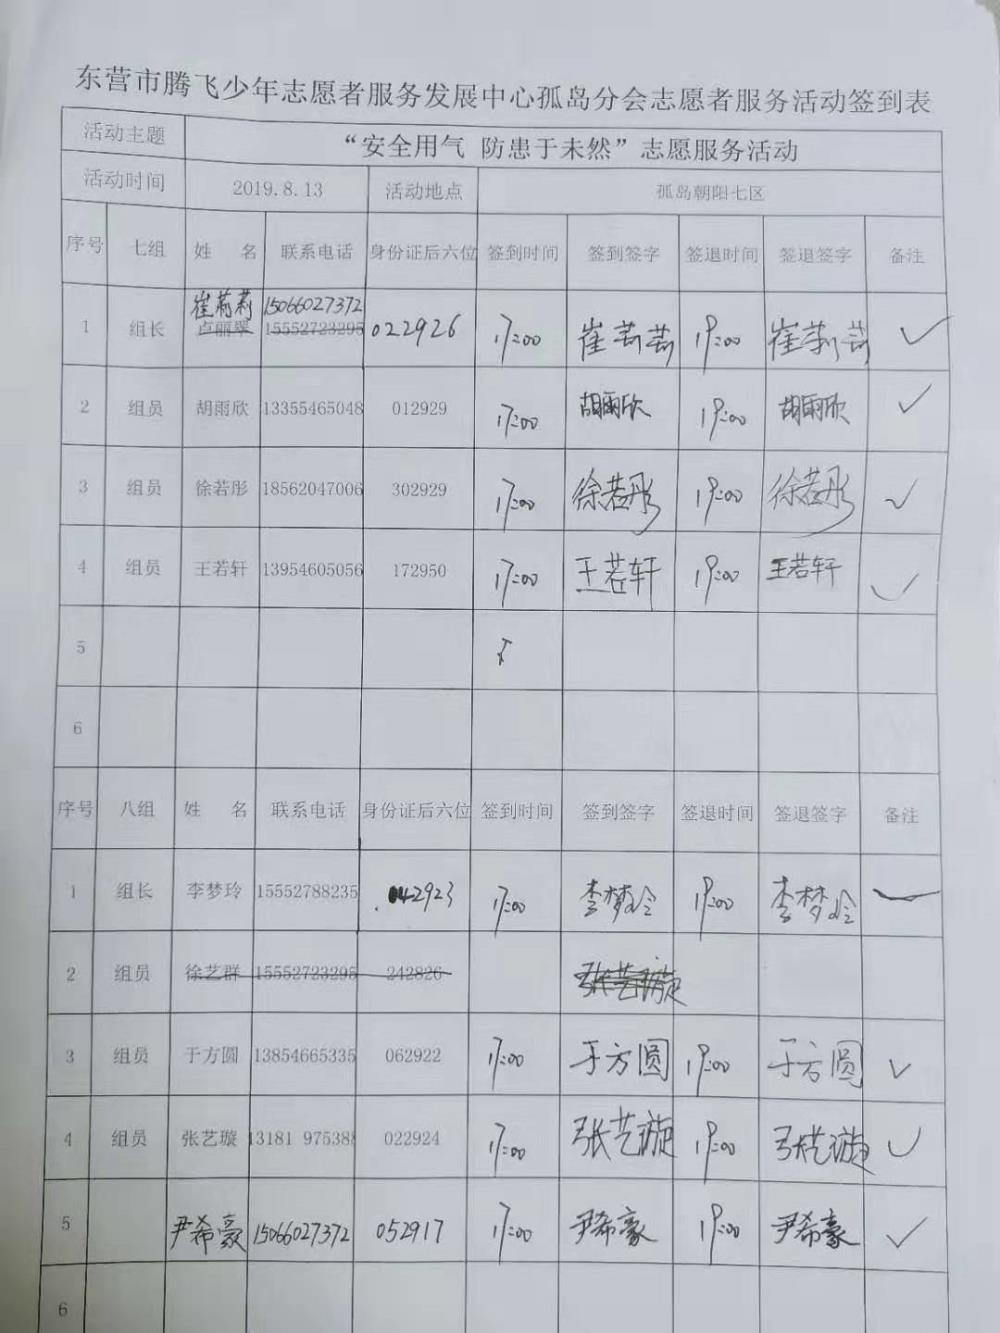 东营市腾飞少年志愿者服务发展中心孤岛分会志愿者服务活动签到表
活动主题 “安全用气 防患于未然”志愿服务活动
活动时间 2019.8.13 活动地点 孤岛朝阳七区
序号 七组 姓 名 联系电话 身份证后六位 签到时间 签到签字 签退时间 签退签字 备注
崔莉莉 15066027372
1 组长 卢丽翠 15552723295 022926 17:00 崔莉莉 19:00 崔莉莉
2 组员 胡雨欣 13355465048 012929 17:00 胡雨欣 19:00 胡雨欣
3 组员 徐若彤 18562047006 302929 17:00 徐若彤 19:00 徐若彤
4 组员 王若轩 13954605056 172950 17:00 王若轩 19:00 王若轩
5
6
序号 八组 姓 名 联系电话 身份证后六位 签到时间 签到签字 签退时间 签退签字 备注
1 组长 李梦玲 15552788235 042923 17:00 李梦玲 19:00 李梦玲
2 组员 徐艺群 15552723295 242826 张艺璇
3 组员 于方圆 13854665335 062922 17:00 于方圆 19:00 于方圆
4 组员 张艺璇 13181 975388 022924 17:00 张艺璇 19:00 张艺璇
5 尹希豪 15066027372 052917 17:00 尹希豪 19:00 尹希豪
6